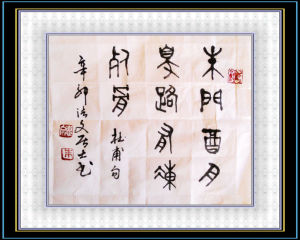 朱門酒肉
臭路有凍
死骨
杜甫句
辛卯文居士书